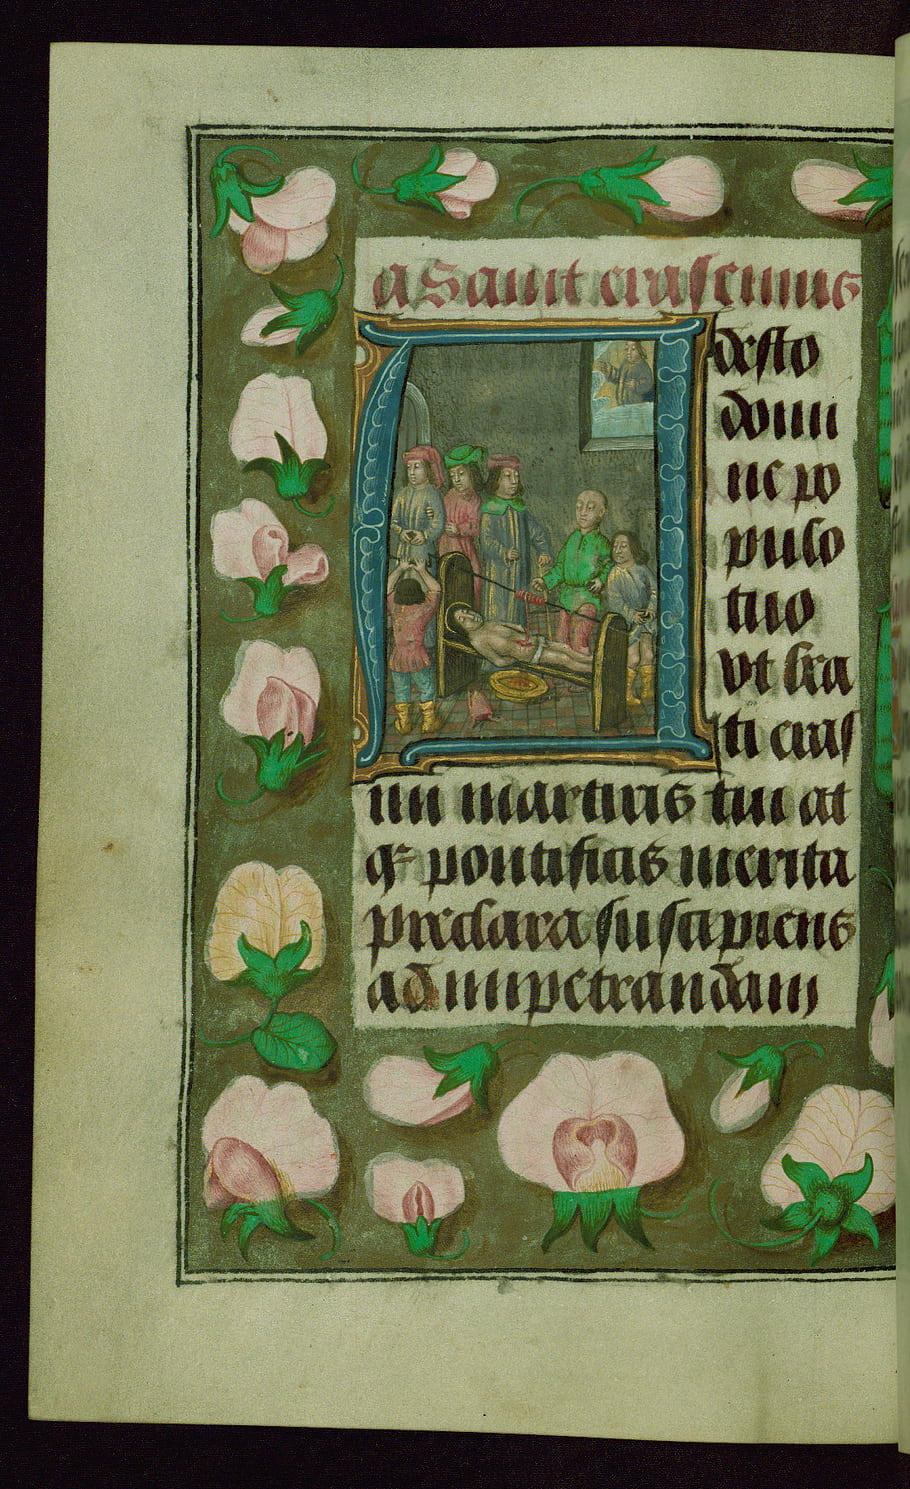 a Saint erasemus
desto
domi
ne po
pulo
tuo
vt bea
ti eras
mi martiris tui at
q pontificis merita
preclara suscipiens
ad impetrandam